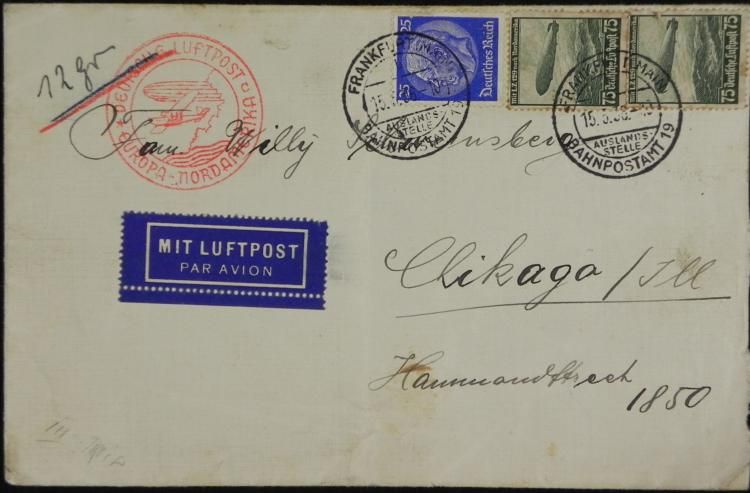 12 gr
DEUTSCHE LUFTPOST
EUROPA-NORDAMERIKA
25
25
Deutsches Reich
mit LZ 129 nach Nordamerika
75 Deutsche Luftpost 75
mit LZ 129 nach Nordamerika
75 Deutsche Luftpost 75
FRANKFURT (MAIN)
AUSLANDS-
STELLE
BAHNPOSTAMT 19
FRANKFURT (MAIN)
15.5.36
AUSLANDS-
STELLE
BAHNPOSTAMT 19
Fam. Willy
MIT LUFTPOST
PAR AVION
Chikago / Ill
Hammondstreet
1850